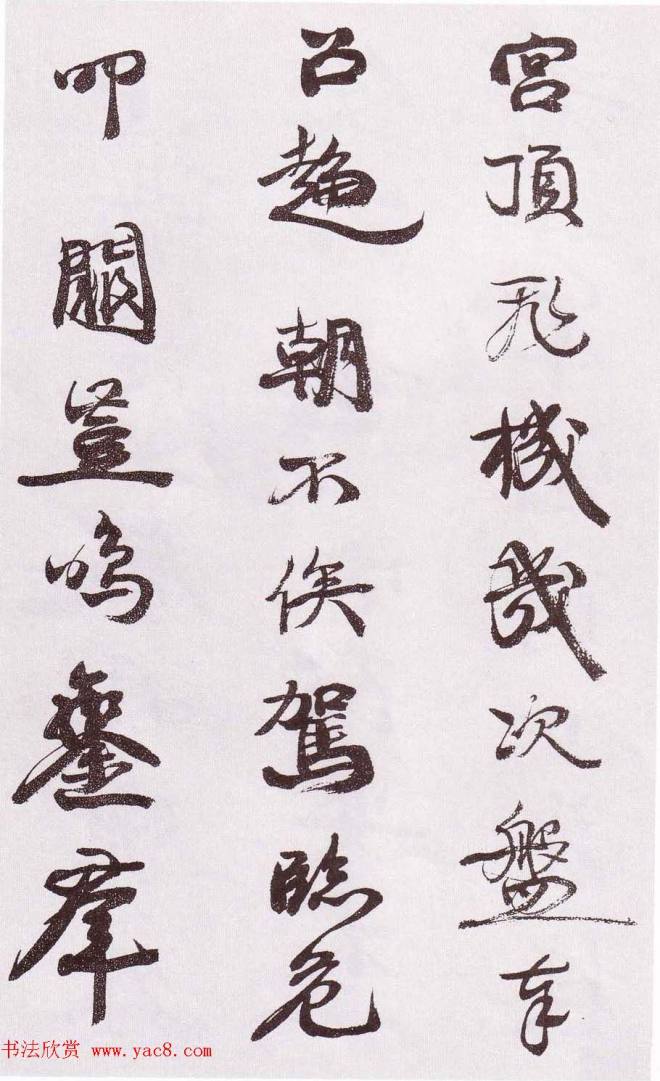 宫頂飛機幾次盤奉
召趋朝不俟駕臨危
叩關豈鳴鑾群
书法欣赏 www.yac8.com